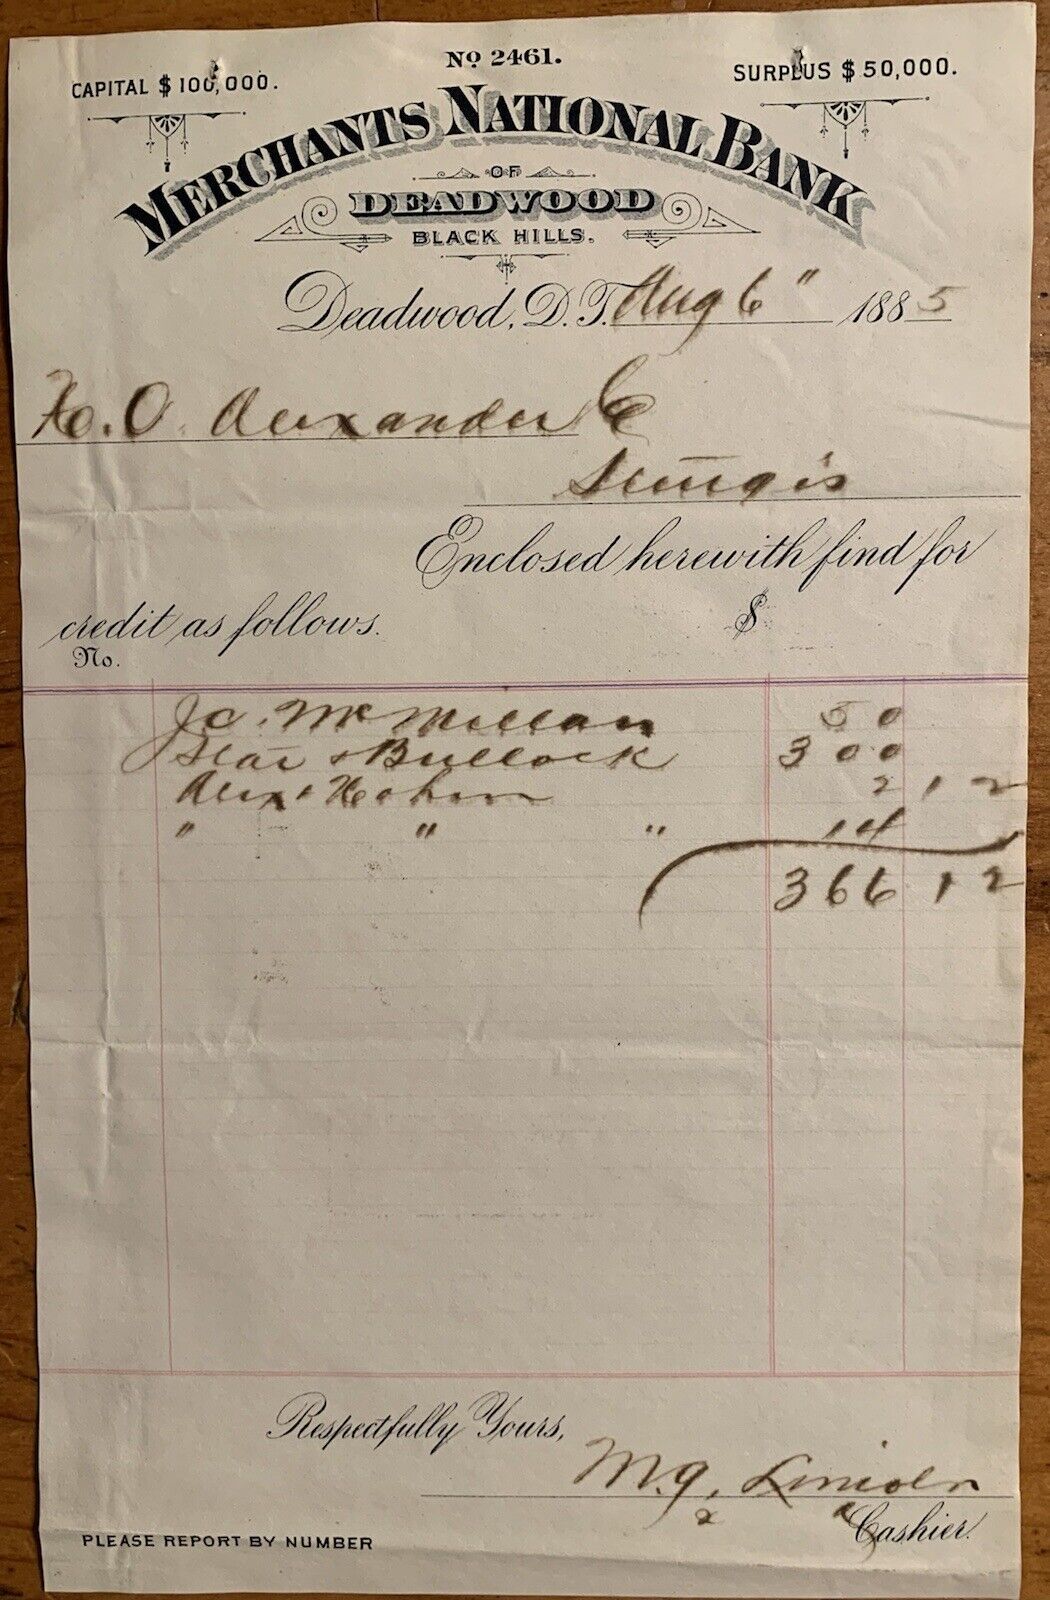 No 2461.
CAPITAL $100,000.
SURPLUS $50,000.
MERCHANTS NATIONAL BANK
OF
DEADWOOD
BLACK HILLS.
Deadwood, D.T. Aug 6" 1885
H.O. Alexander Co
Sturgis
Enclosed herewith find for
credit as follows. $
No.
Jc. McMillan 50
Star & Bullock 300
Alex & 2 12
" " " 14
366 12
Respectfully Yours,
Cashier.
PLEASE REPORT BY NUMBER